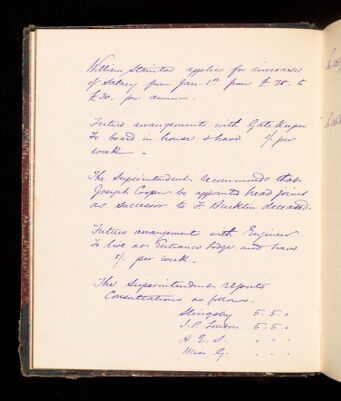 William Stainton applies for increase
of Salary from Jan. 1st from £28. to
£30. per annum.
Future arrangements with Gatekeeper
To board in house & have /. per
week.
The Superintendent recommends that
Joseph Cooper be appointed head joiner
as successor to F Buckton deceased.
Future arrangements with Engineer
To live at Entrance Lodge, and have
/. per week.
The Superintendent reports
Consultations as follows.
Slingsby 5. 5. 0
J. P. London 5. 5. 0
H. E. S. " " "
Miss G. " " "